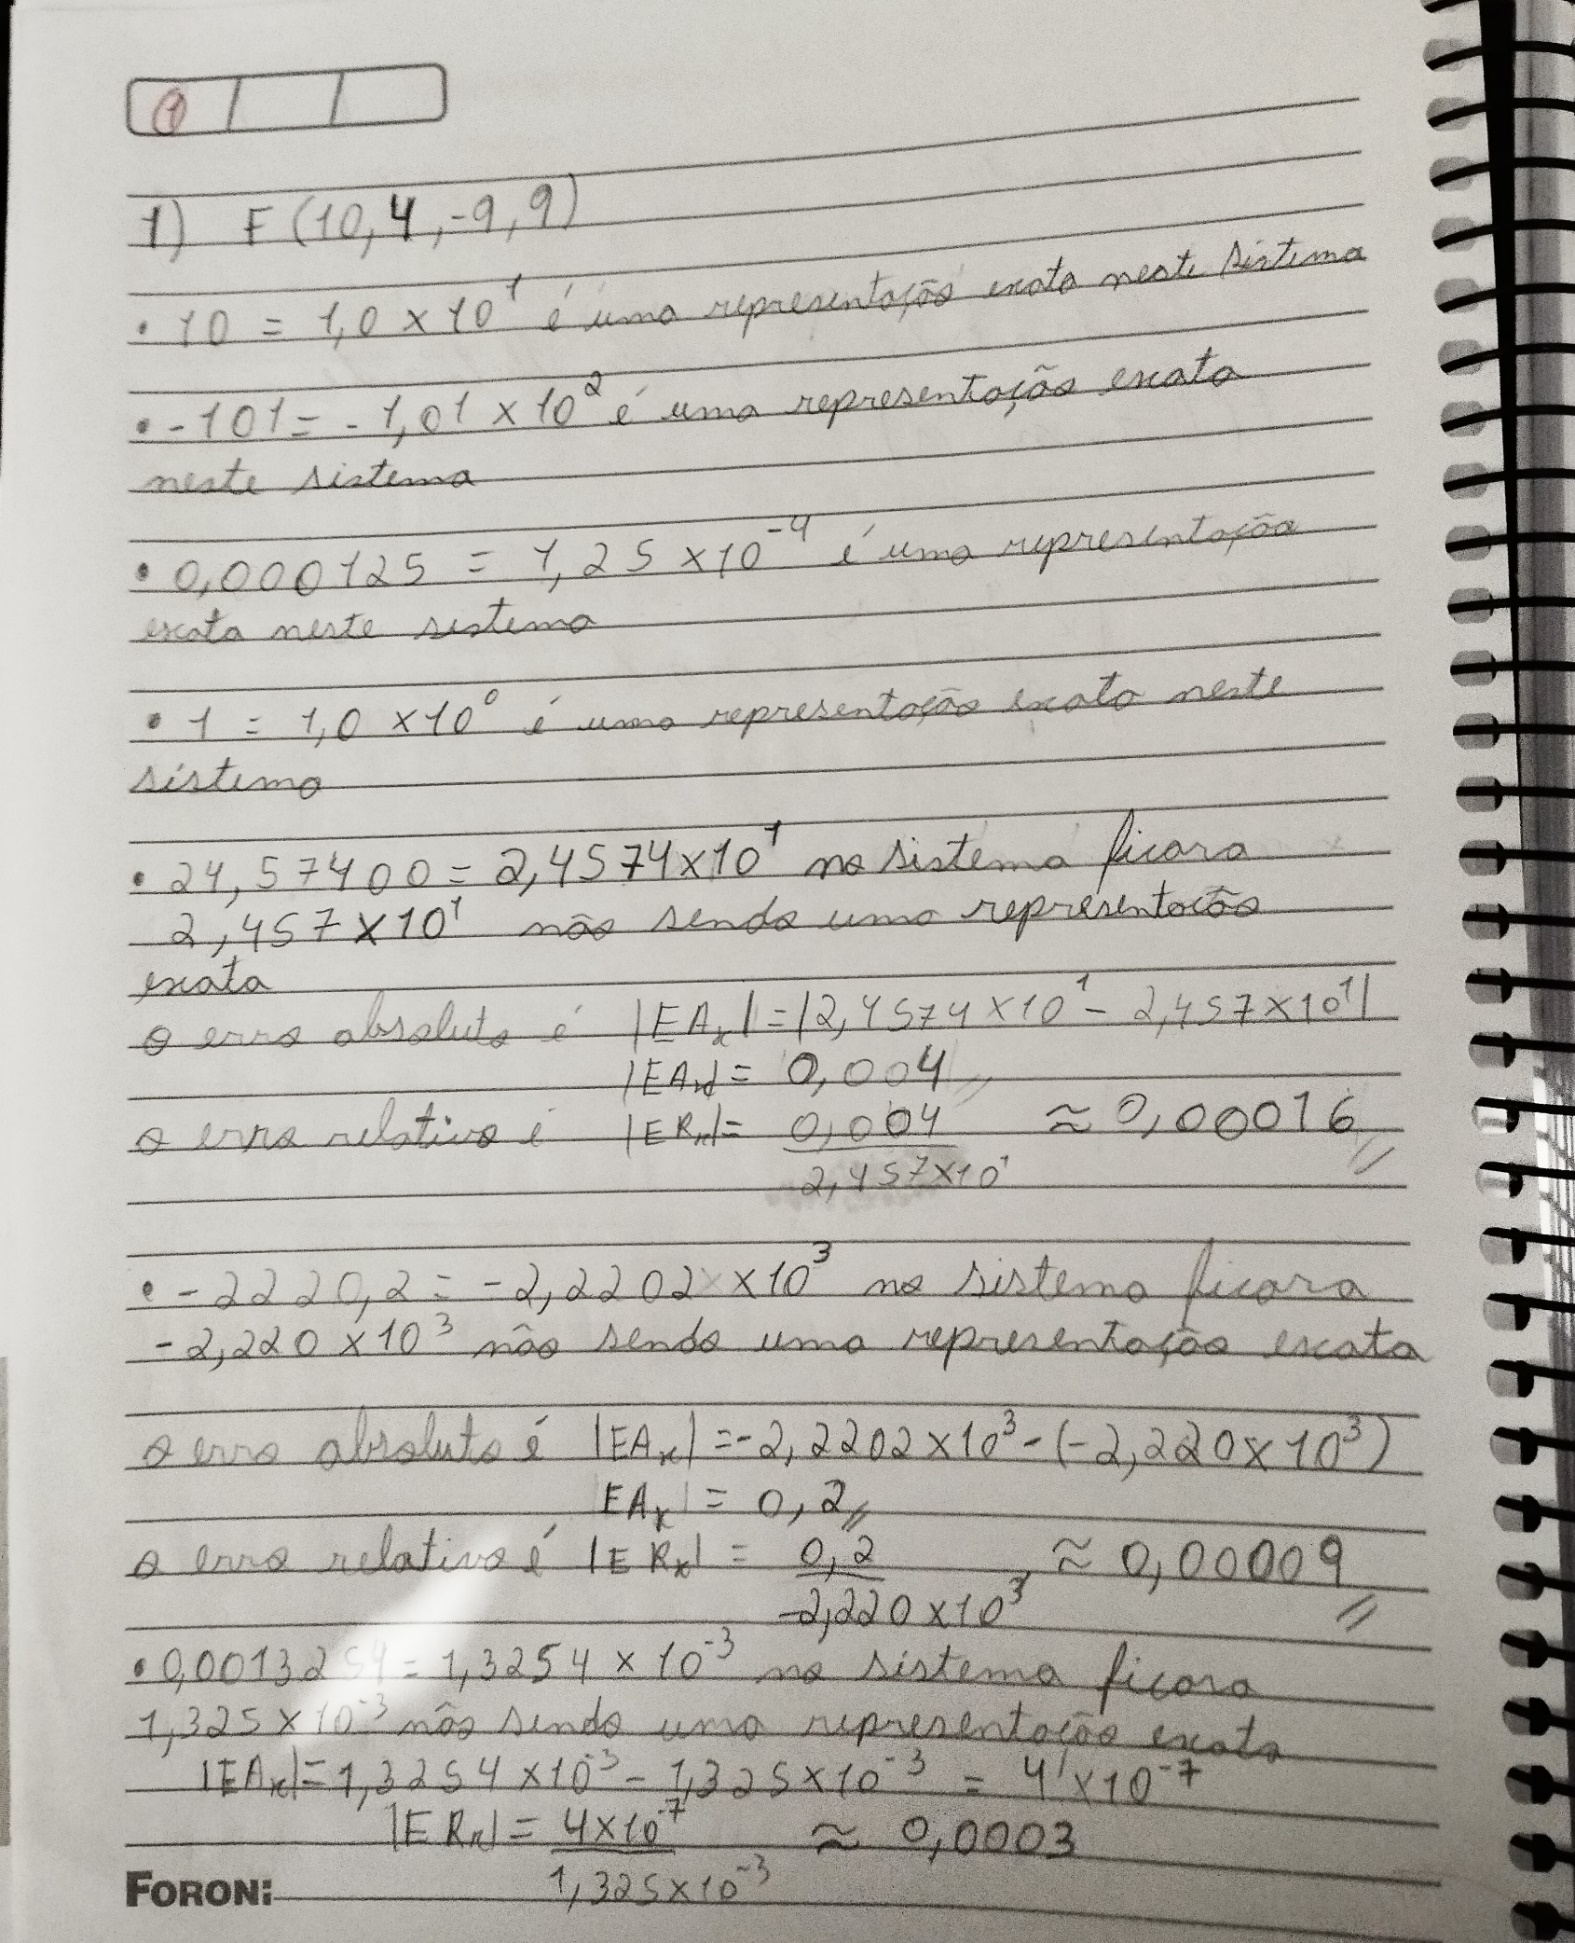 1
1) F(10,4,-9,9)
• 10 = 1,0 × 10¹ é uma representação exata neste sistema
• -101 = -1,01 × 10² é uma representação exata
neste sistema
• 0,000125 = 1,25 × 10⁻⁴ é uma representação
exata neste sistema
• 1 = 1,0 × 10⁰ é uma representação exata neste
sistema
• 24,57400 = 2,4574 × 10¹ no sistema ficara
2,457 × 10¹ não sendo uma representacão
exata
o erro absoluto é |EAₓ| = |2,4574 × 10¹ - 2,457 × 10¹|
|EAₓ| = 0,004 //
o erro relativo é |ERₓ| = 0,004 ≈ 0,00016 //
2,457 × 10¹
• -2220,2 = -2,2202 × 10³ no sistema ficara
-2,220 × 10³ não sendo uma representação exata
o erro absoluto é |EAₓ| = -2,2202 × 10³ - (-2,220 × 10³)
|EAₓ| = 0,2 //
o erro relativo é |ERₓ| = 0,2 ≈ 0,00009 //
-2,220 × 10³
• 0,0013254 = 1,3254 × 10⁻³ no sistema ficara
1,325 × 10⁻³ não sendo uma representação exata
|EAₓ| = 1,3254 × 10⁻³ - 1,325 × 10⁻³ = 4 × 10⁻⁷
|ERₓ| = 4 × 10⁻⁷ ≈ 0,0003
1,325 × 10⁻³
FORONI